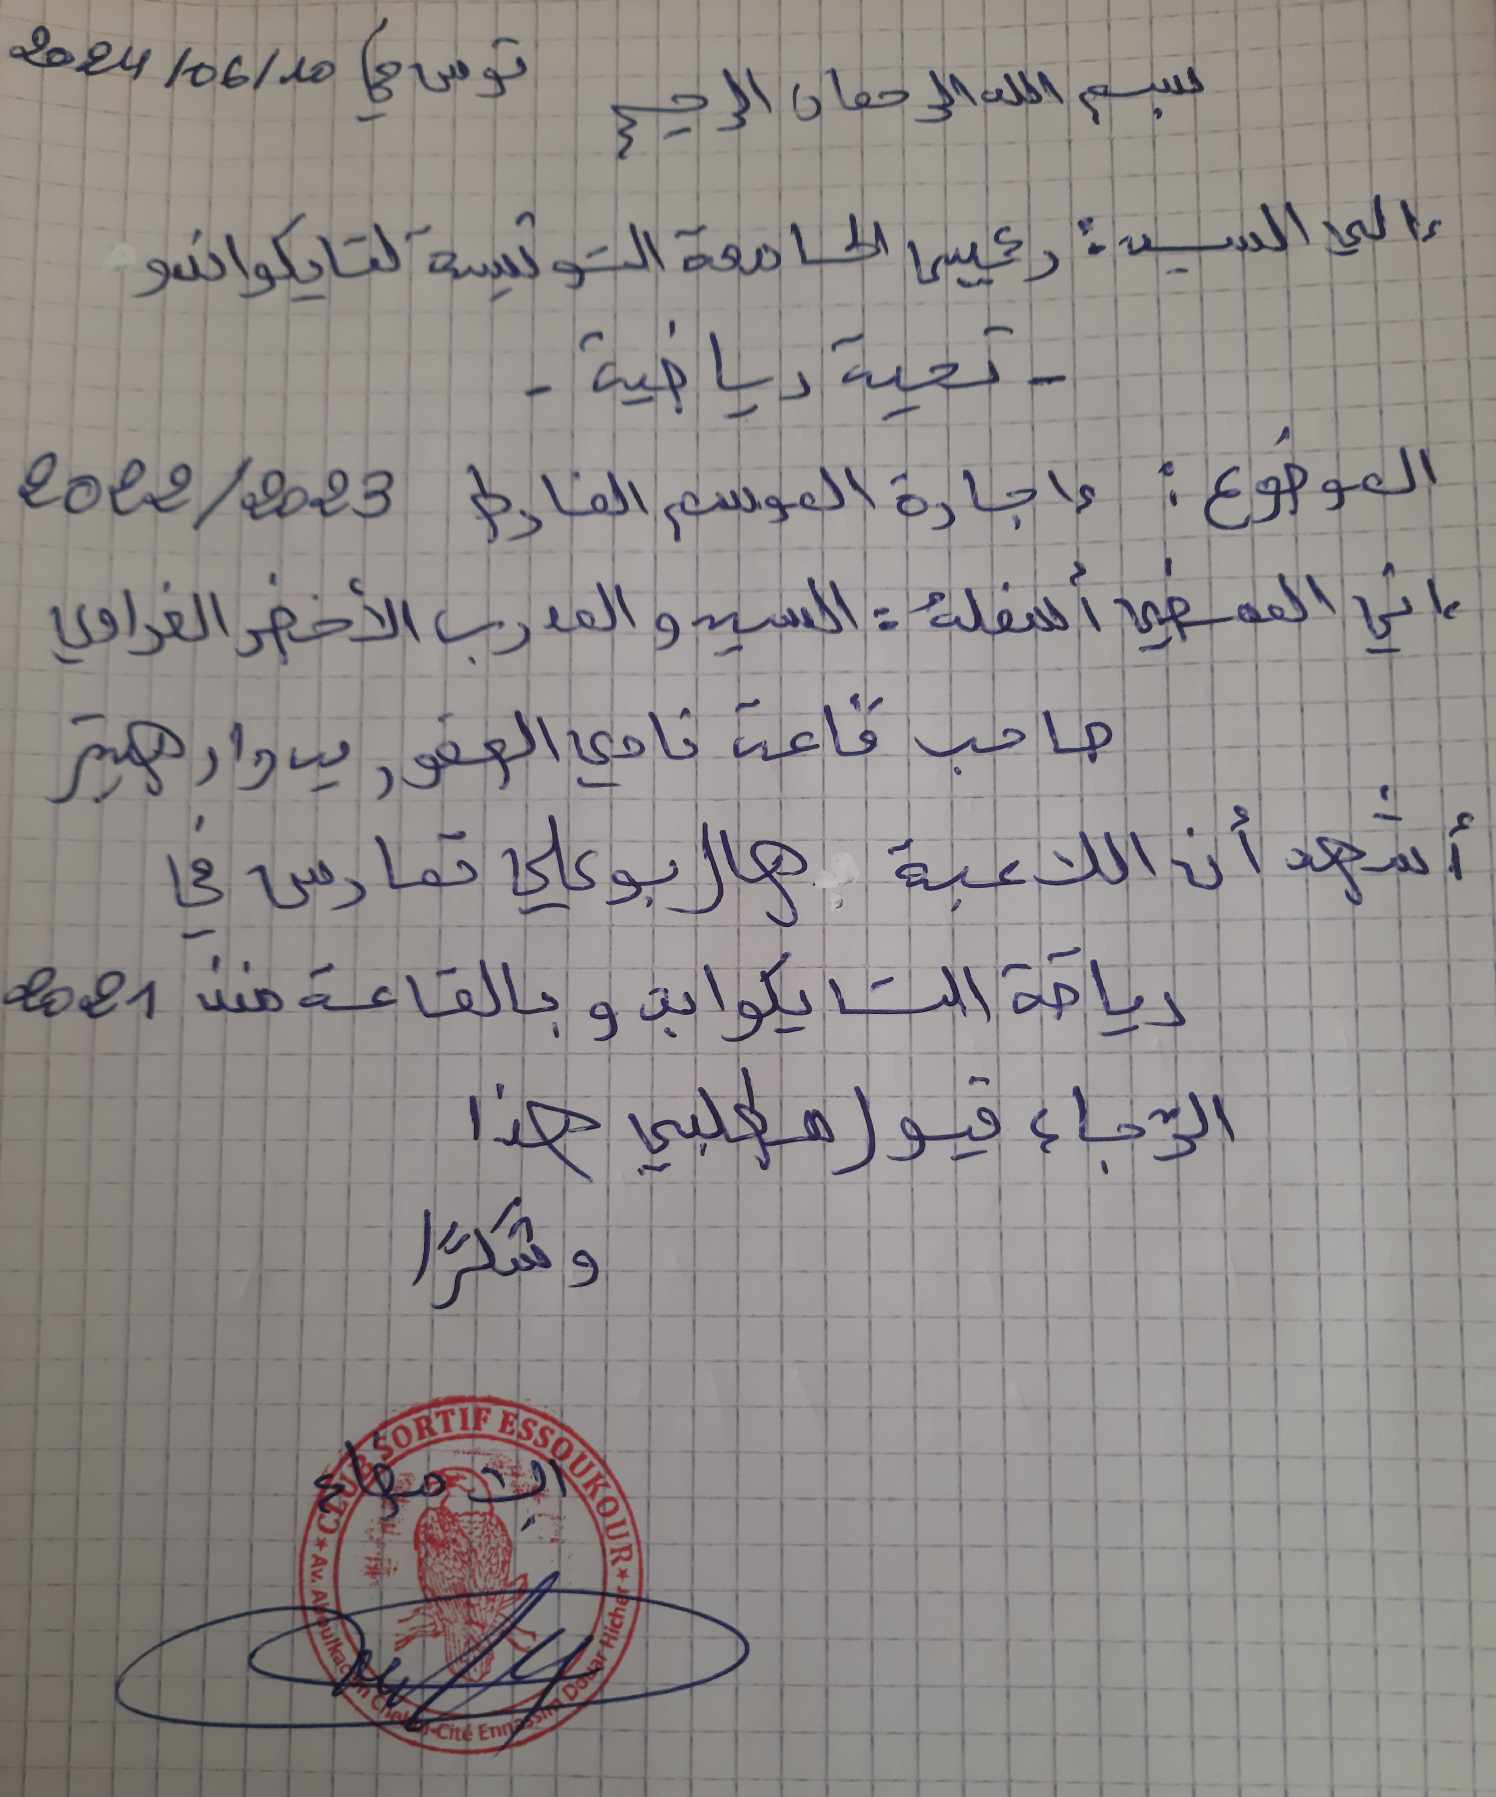 بسم الله الرحمان الرحيم
تونس في 2024/06/10
إلى السيد: رئيس الجامعة التونسية لتايكواندو
- تحية رياضية -
الموضوع: إجازة الموسم الفارط 2022/2023
إني الممضي أسفله: السيد والمدرب الأخضر الغزاوي
صاحب قاعة نادي الصقور بدوار هيشر
أشهد أن اللاعبة بوعلي تمارس في
رياضة التايكواندو وبالقاعة منذ 2021
الرّجاء قبول مطلبي هذا
وشكرًا
CLUB SORTIF ESSOUKOUR
الإمضاء
Av. Abdulkacem Chebbi-Cité Ennassim Douar Hicher